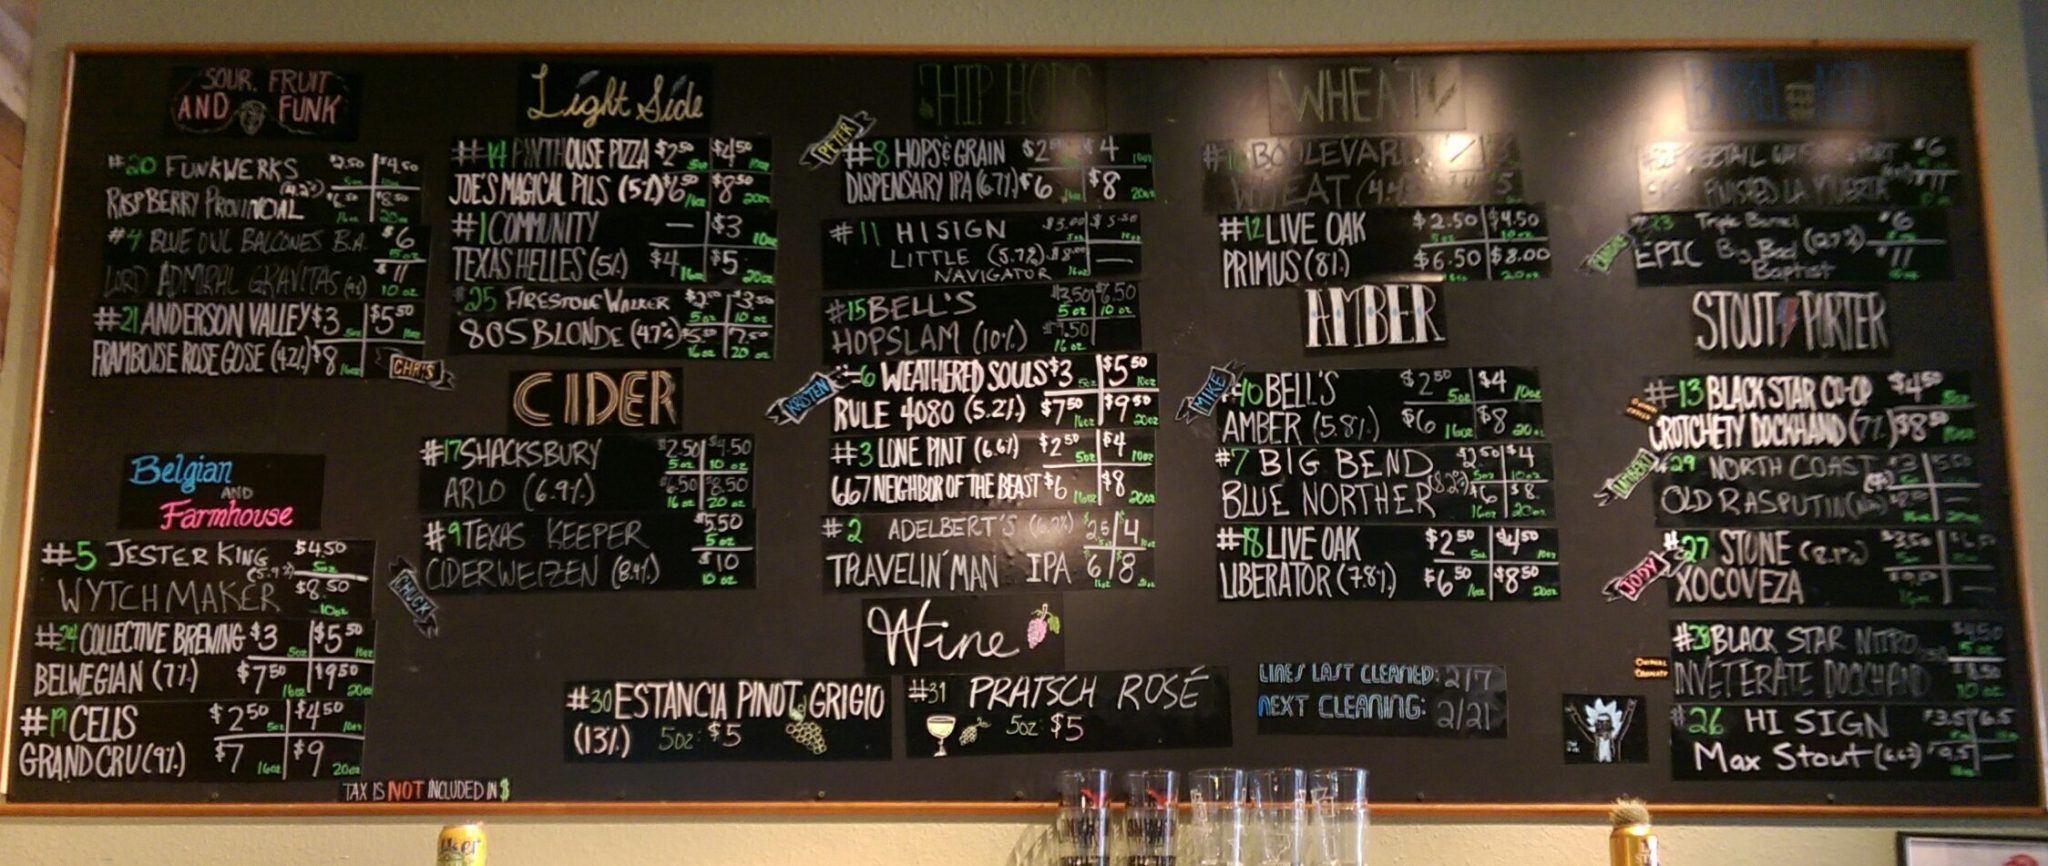 SOUR, FRUIT
AND FUNK
#20 FUNKWERKS $2.50 5oz $4.50 10oz
RASPBERRY PROVINCIAL (4.2%) $6.50 16oz $8.50 20oz
#4 BLUE OWL BALCONES B.A. $6 5oz
LORD ADMIRAL GRAVITAS $11 10oz
#21 ANDERSON VALLEY $3 5oz $5.50 10oz
FRAMBOISE ROSE GOSE (4.2%) $8 16oz
CHRIS
Belgian
AND
Farmhouse
#5 JESTER KING $4.50 5oz
WYTCHMAKER (5.9%) $8.50 10oz
#24 COLLECTIVE BREWING $3 5oz $5.50 10oz
BELWEGIAN (7%) $7.50 16oz $9.50 20oz
#19 CELIS $2.50 5oz $4.50 10oz
GRAND CRU (9%) $7 16oz $9 20oz
TAX IS NOT INCLUDED IN $
Light Side
#14 PINTHOUSE PIZZA $2.50 5oz $4.50 10oz
JOE'S MAGICAL PILS (5%) $6.50 16oz $8.50 20oz
#1 COMMUNITY — $3 10oz
TEXAS HELLES (5%) $4 16oz $5 20oz
#25 FIRESTONE WALKER 5oz $3.50 10oz
805 BLONDE (4.7%) $5.50 16oz $7.50 20oz
CIDER
#17 SHACKSBURY $2.50 5oz $4.50 10oz
ARLO (6.9%) $6.50 16oz $8.50 20oz
#9 TEXAS KEEPER $5.50 5oz
CIDERWEIZEN (8.4%) $10 10oz
CHUCK
HIP HOPS
PETER
#8 HOPS & GRAIN $4 10oz
DISPENSARY IPA (6.7%) $6 16oz $8 20oz
#11 HI SIGN $3.00 5oz $5.50 10oz
LITTLE (5.7%) $8.00 —
NAVIGATOR 16oz
#15 BELL'S $3.50 5oz $6.50 10oz
HOPSLAM (10%) $9.50 16oz
KRISTEN
#6 WEATHERED SOULS $3 5oz $5.50 10oz
RULE 4080 (5.2%) $7.50 16oz $9.50 20oz
#3 LONE PINT (6.6%) $2.50 5oz $4 10oz
667 NEIGHBOR OF THE BEAST $6 16oz $8 20oz
#2 ADELBERT'S $4 10oz
TRAVELIN' MAN IPA 6 16oz 8 20oz
Wine
#30 ESTANCIA PINOT GRIGIO
(13%) 5oz: $5
#31 PRATSCH ROSÉ
5oz: $5
WHEAT
BOULEVARD
WHEAT
#12 LIVE OAK $2.50 5oz $4.50 10oz
PRIMUS (8%) $6.50 16oz $8.00 20oz
AMBER
MIKE
#10 BELL'S $2.50 5oz $4 10oz
AMBER (5.8%) $6 16oz $8 20oz
#7 BIG BEND $2.50 5oz $4 10oz
BLUE NORTHER (8.2%) $6 16oz $8 20oz
#18 LIVE OAK $2.50 5oz $4.50 10oz
LIBERATOR (7.8%) $6.50 16oz $8.50 20oz
LINES LAST CLEANED: 2/7
NEXT CLEANING: 2/21
BARREL AGED
$6
$11
#23 Triple Barrel $6
EPIC Big Bad $11
Baptist
STOUT PORTER
#13 BLACK STAR CO-OP $4.50 5oz
CROTCHETY DOCKHAND (7%) $8.50 10oz
#29 NORTH COAST
OLD RASPUTIN
JODY
#27 STONE
XOCOVEZA
#28 BLACK STAR NITRO $4.50 5oz
INVETERATE DOCKHAND $8.50 10oz
#26 HI SIGN $3.5 6.5
Max Stout $9.5 —